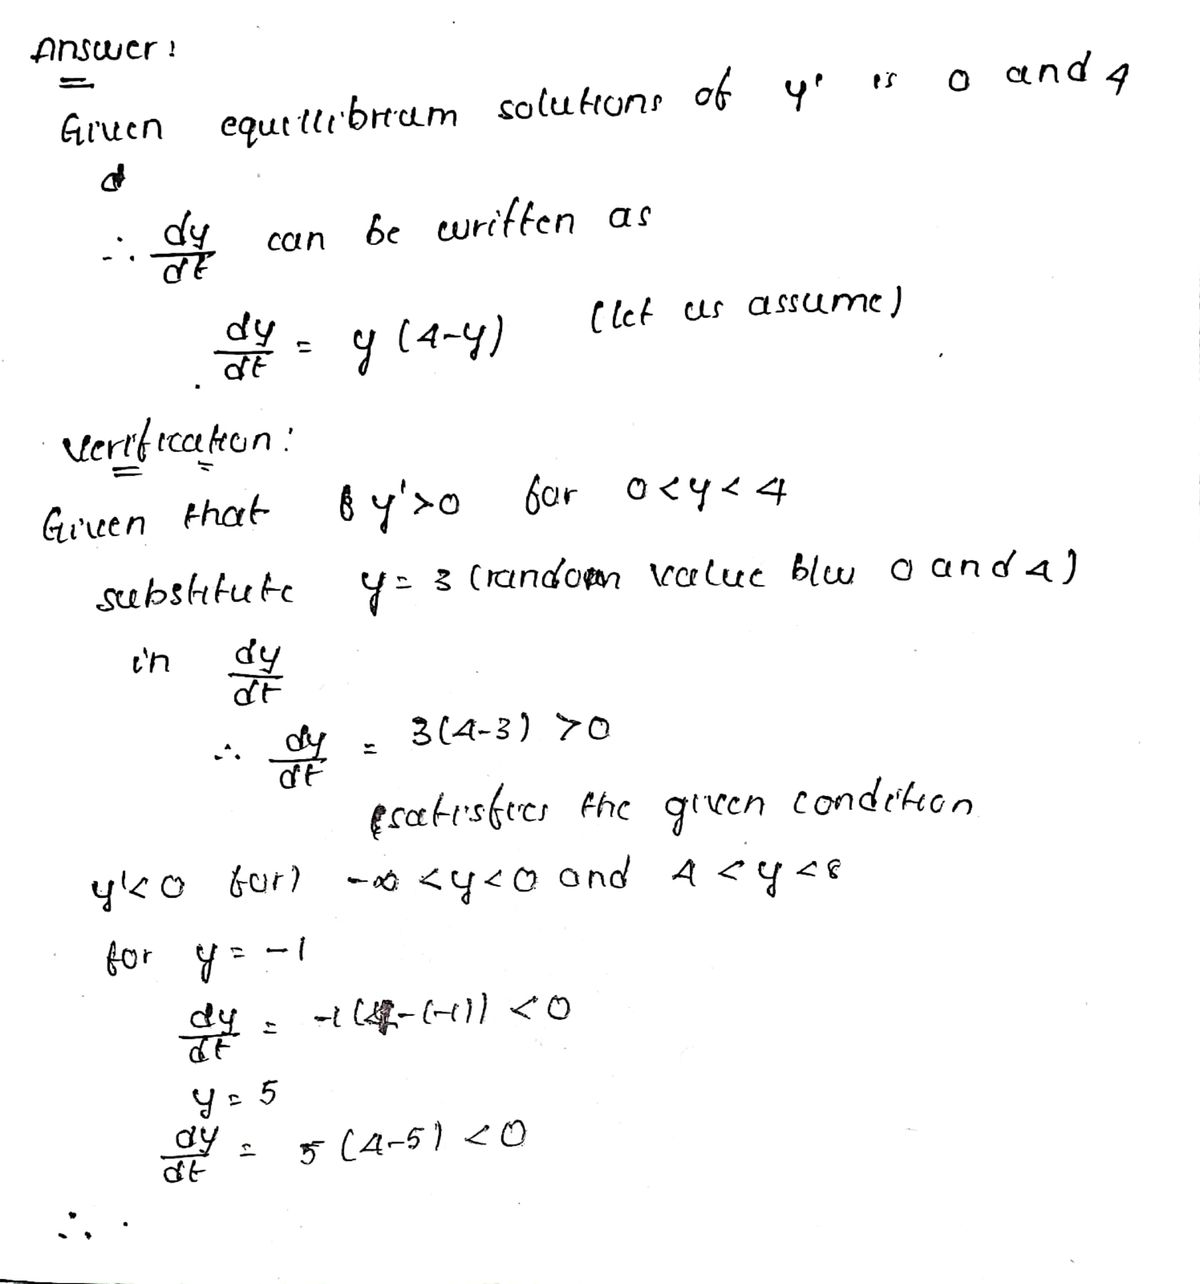 Answer :
Given equillibrium solutions of y' is 0 and 4
d
∴ dy/dt can be written as
dy/dt = y (4-y) (let us assume)
Verification :
Given that y'>0 for 0<y<4
substitute y = 3 (random value b/w 0 and 4)
in dy/dt
∴ dy/dt = 3(4-3) >0
satisfies the given condition
y'<0 for) -∞ <y<0 and 4 <y<8
for y = -1
dy/dt = -1 (4-(-1)) <0
y = 5
dy/dt = 5 (4-5) <0
∴ .